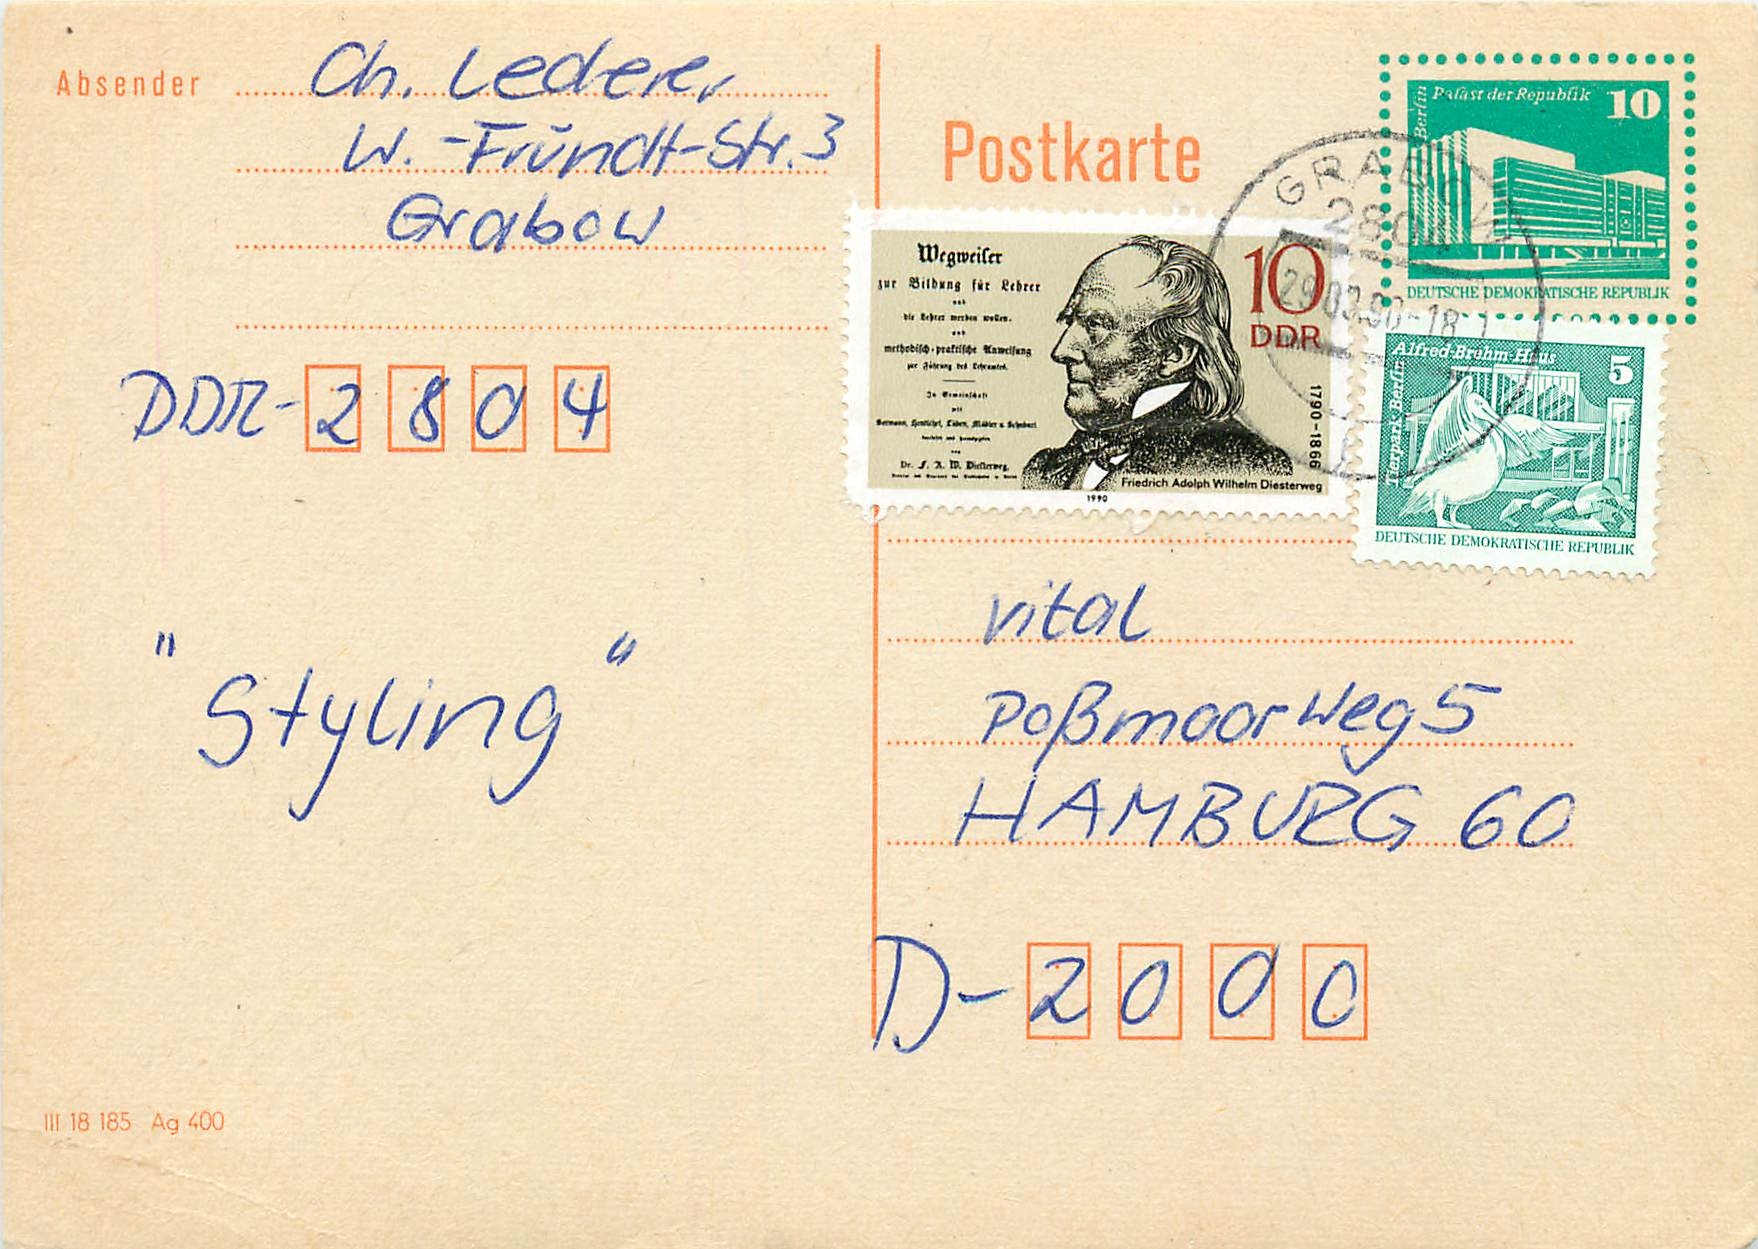 Absender
Ch. Lederer
W.-Fründt-Str. 3
Grabow
DDR-2804
"Styling"
III 18 185 Ag 400
Postkarte
Berlin
Palast der Republik 10
DEUTSCHE DEMOKRATISCHE REPUBLIK
GRABOW
280
29.03.90-18
Wegweiser
zur Bildung für Lehrer
und
die Lehrer werden wollen,
und
methodisch-praktische Anweisung
zur Führung des Lehramtes.
In Gemeinschaft
mit
Dr. F. A. W. Diesterweg,
10
DDR
1790-1866
Friedrich Adolph Wilhelm Diesterweg
1990
Alfred-Brehm-Haus
5
Tierpark Berlin
DEUTSCHE DEMOKRATISCHE REPUBLIK
vital
Poßmoorweg 5
HAMBURG 60
D-2000